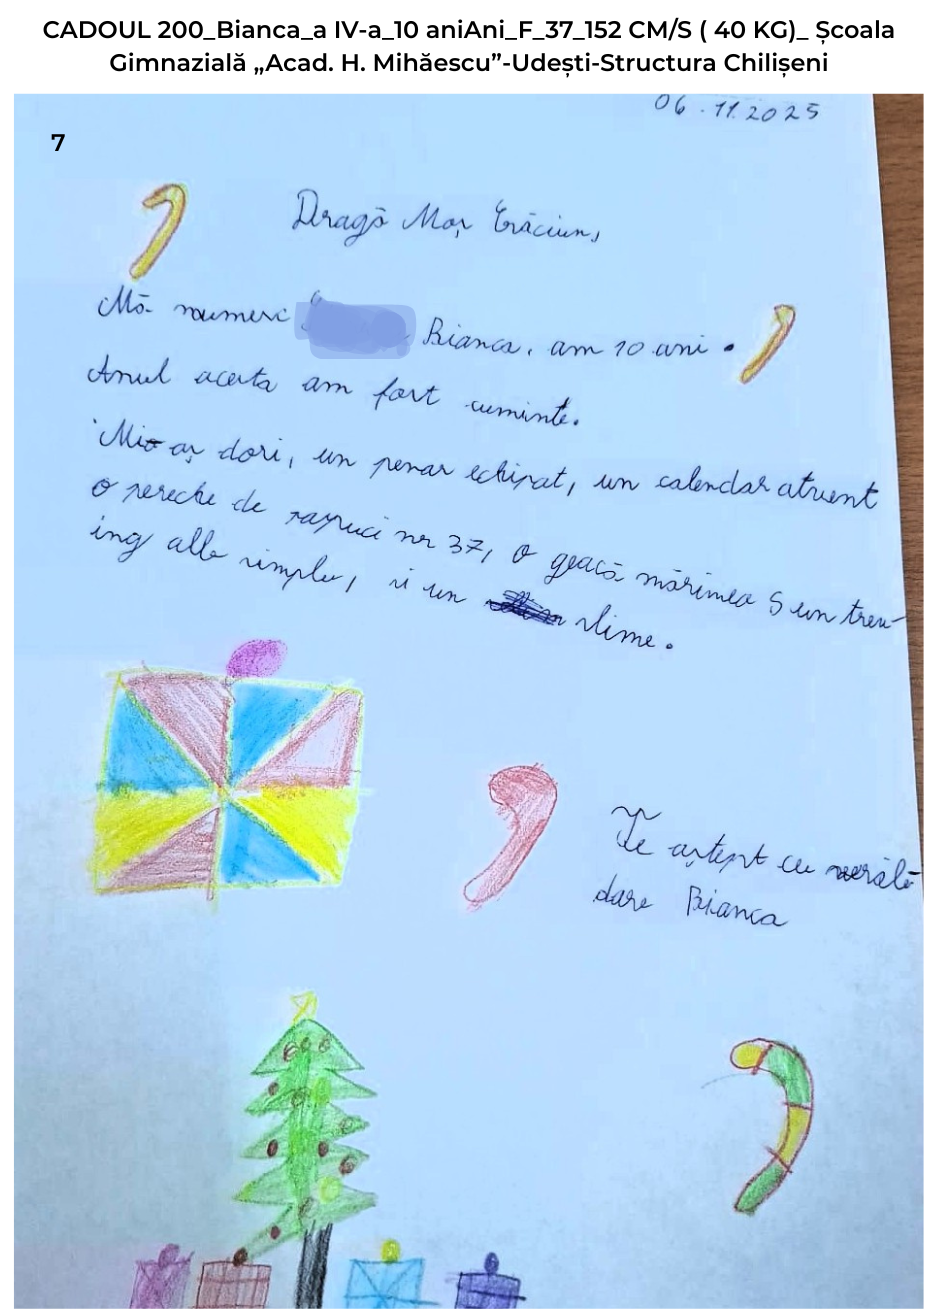 CADOUL 200_Bianca_a IV-a_10 aniAni_F_37_152 CM/S ( 40 KG)_ Școala
Gimnazială „Acad. H. Mihăescu”-Udești-Structura Chilișeni
06.11.2025
7
Dragă Moș Crăciun,
Mă numesc Bianca, am 10 ani.
Anul acesta am fost cuminte.
Mi-aș dori, un penar echipat, un calendar atvent
o pereche de papuci nr 37, o geacă mărimea S un tren-
ing alb simplu, si un slime.
Te aștept cu nerăb-
dare Bianca